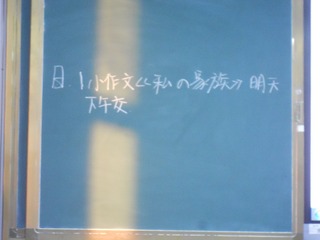 日.1小作文《私の家族》明天
下午交